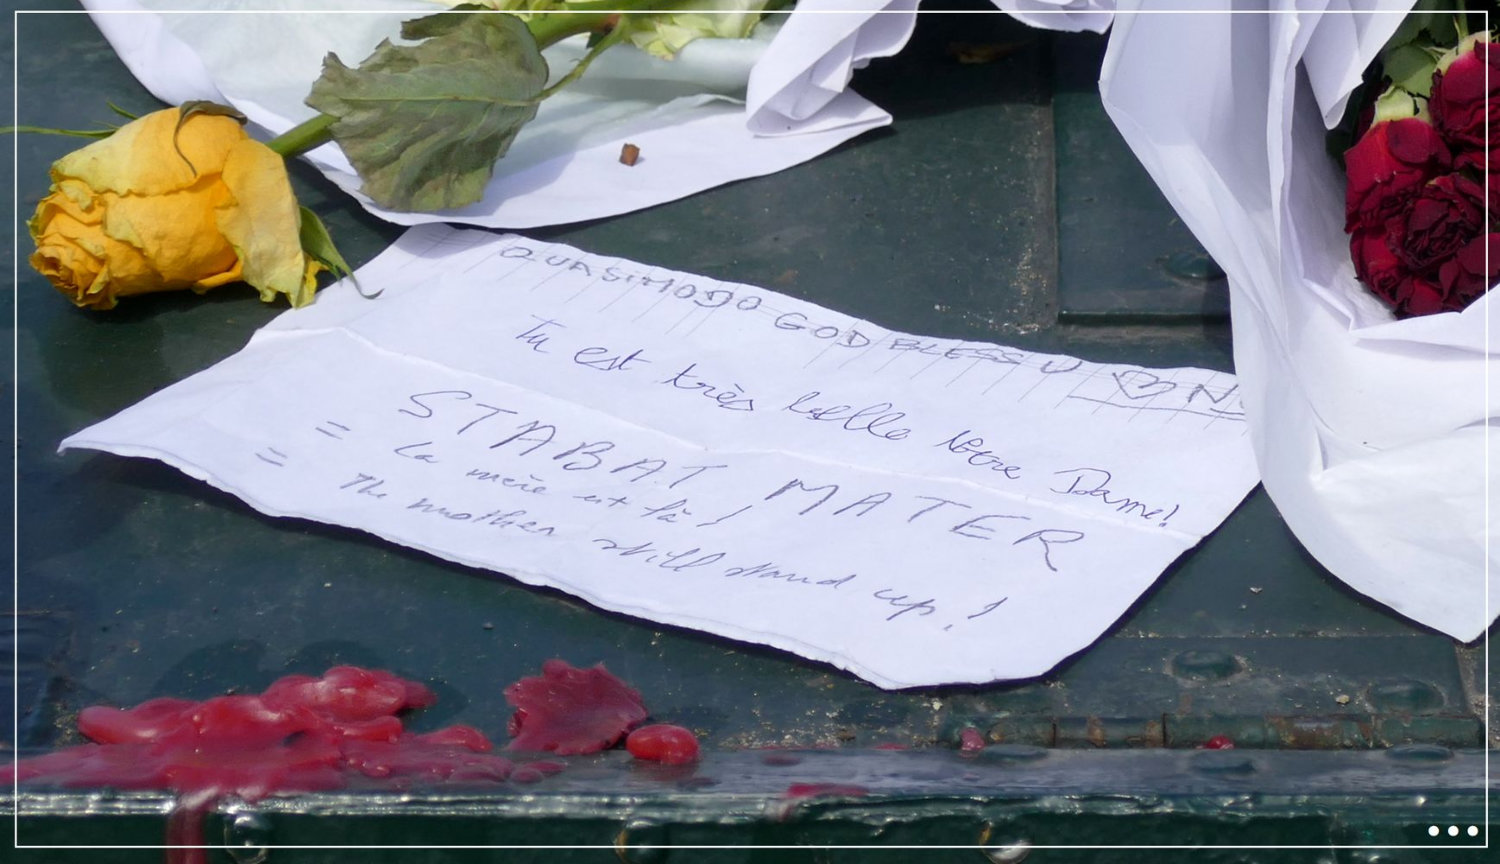 QUASIMODO GOD BLESS U ♡ N
Tu est très belle Notre Dame!
STABAT MATER
= La mère est là!
= The mother still stand up!